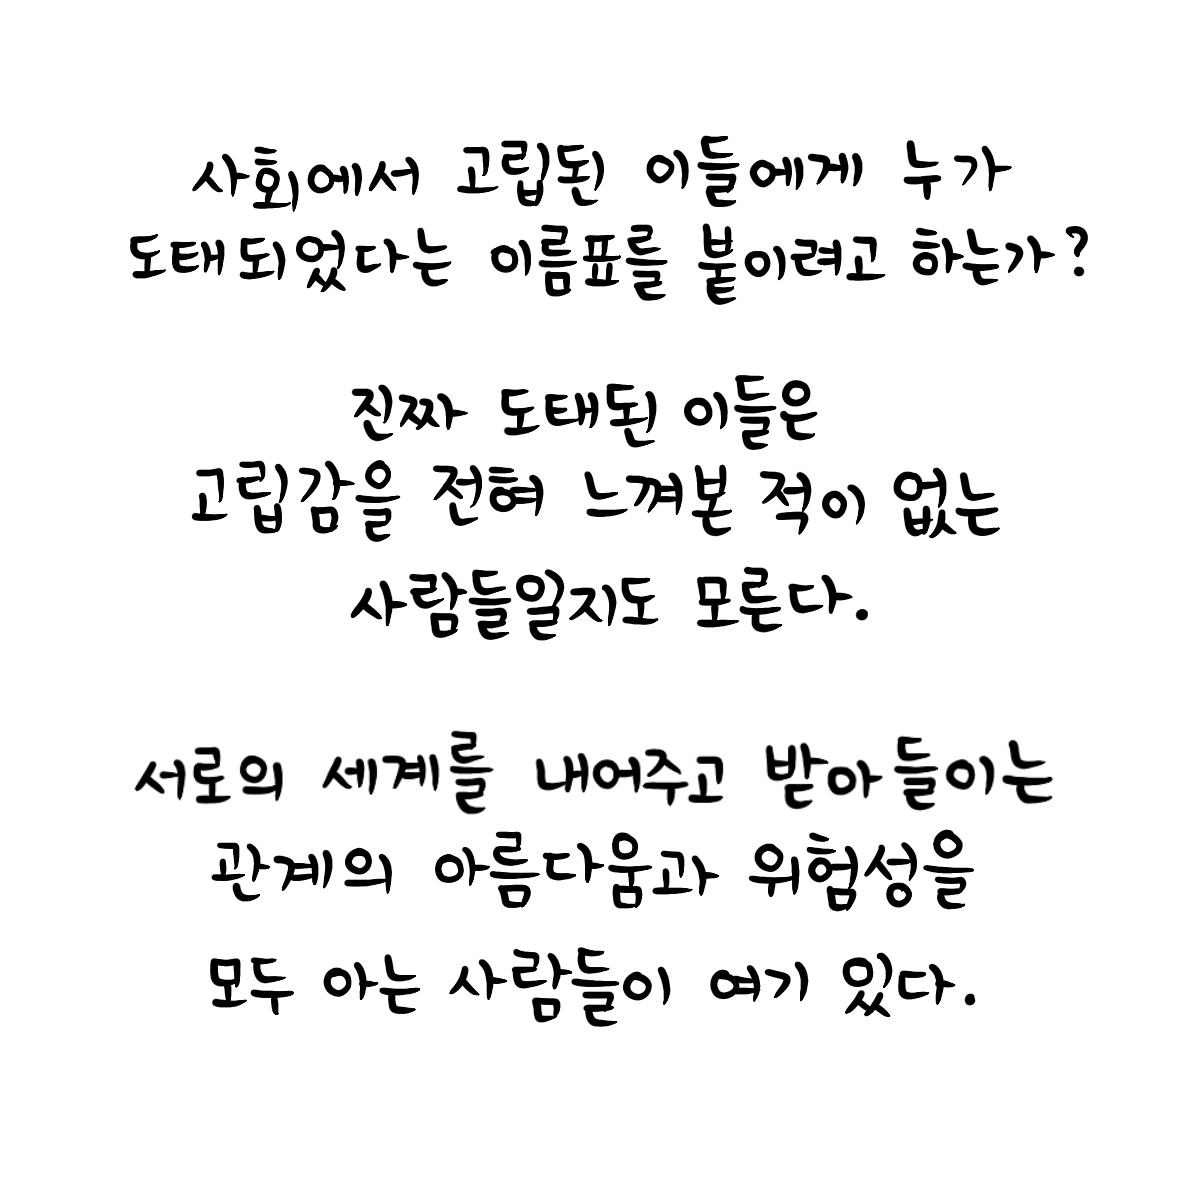 사회에서 고립된 이들에게 누가
도태되었다는 이름표를 붙이려고 하는가?
진짜 도태된 이들은
고립감을 전혀 느껴본 적이 없는
사람들일지도 모른다.
서로의 세계를 내어주고 받아들이는
관계의 아름다움과 위험성을
모두 아는 사람들이 여기 있다.